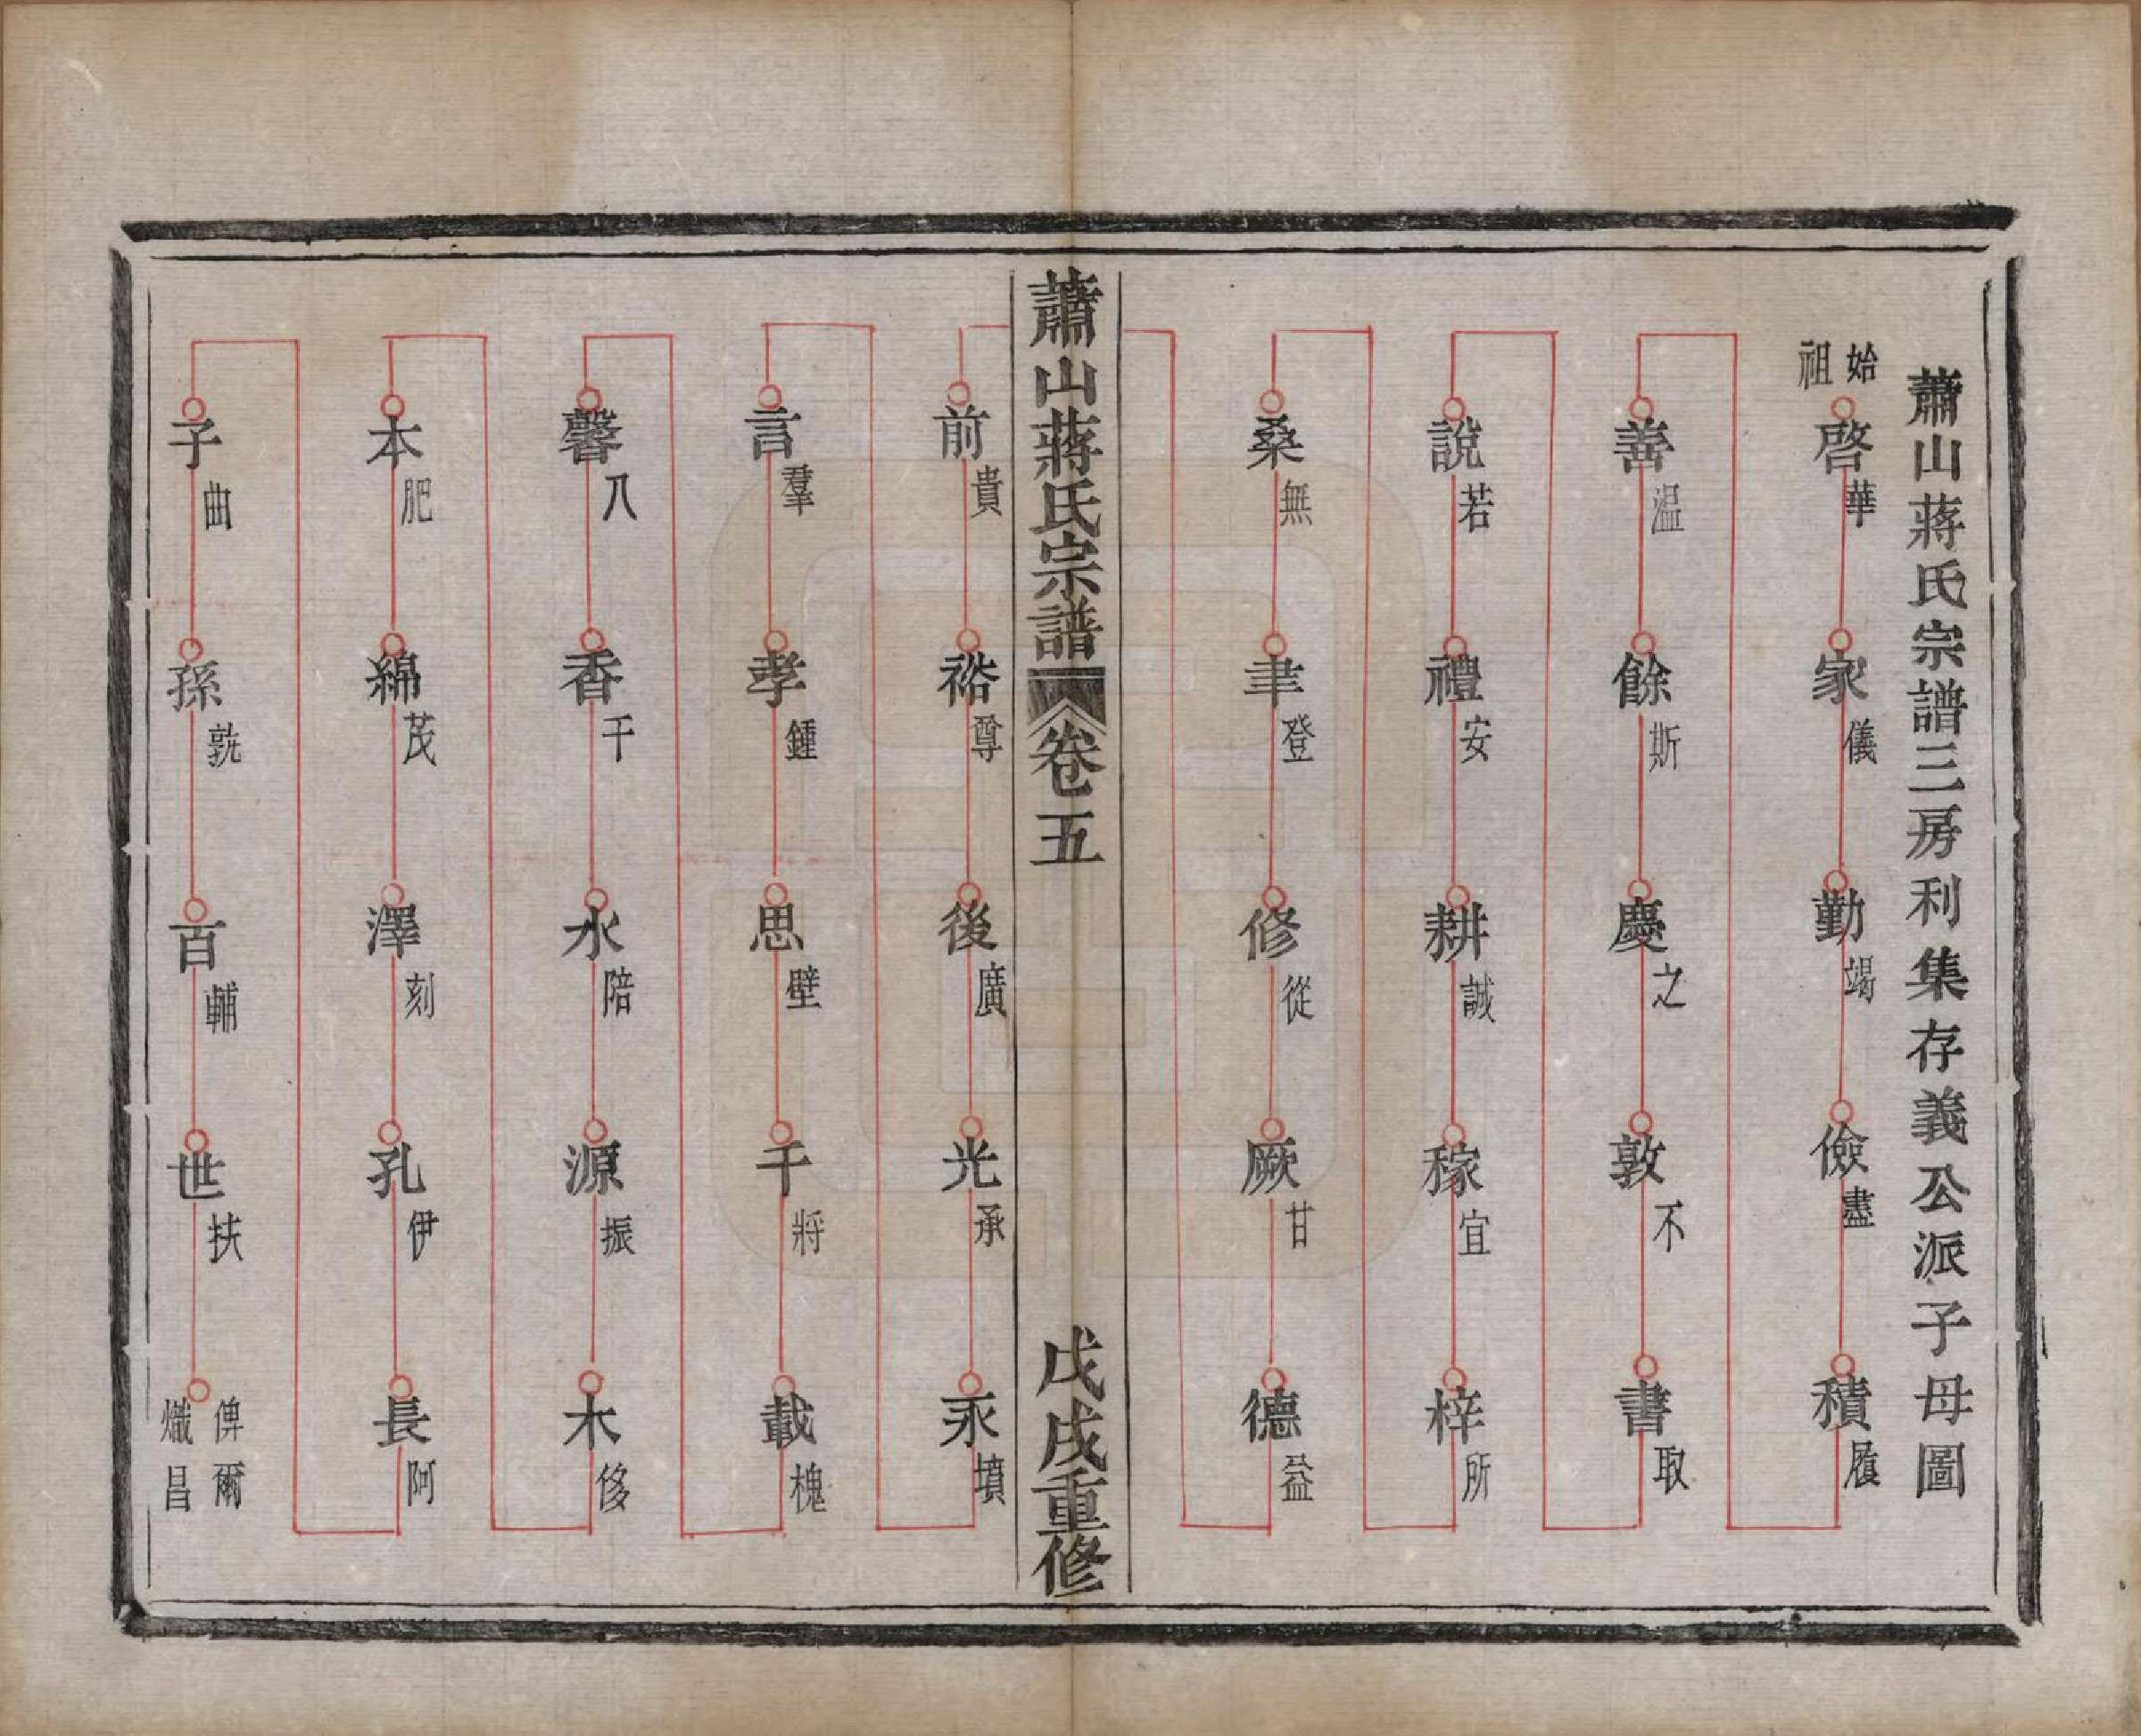 蕭山蔣氏宗譜三房利集存義公派子母圖
始祖
啓華
家儀
勤竭
儉盡
積履
善温
餘斯
慶之
敦不
書取
說若
禮安
耕誠
稼宜
梓所
桑無
聿登
修從
厥甘
德益
蕭山蔣氏宗譜
卷五
戊戌重修
前貴
裕尊
後廣
光承
永墳
言羣
孝鍾
思壁
千將
載槐
馨八
香干
水陪
源振
木侈
本肥
綿茂
澤刻
孔伊
長阿
子曲
孫
百輔
世扶
俾爾
熾昌